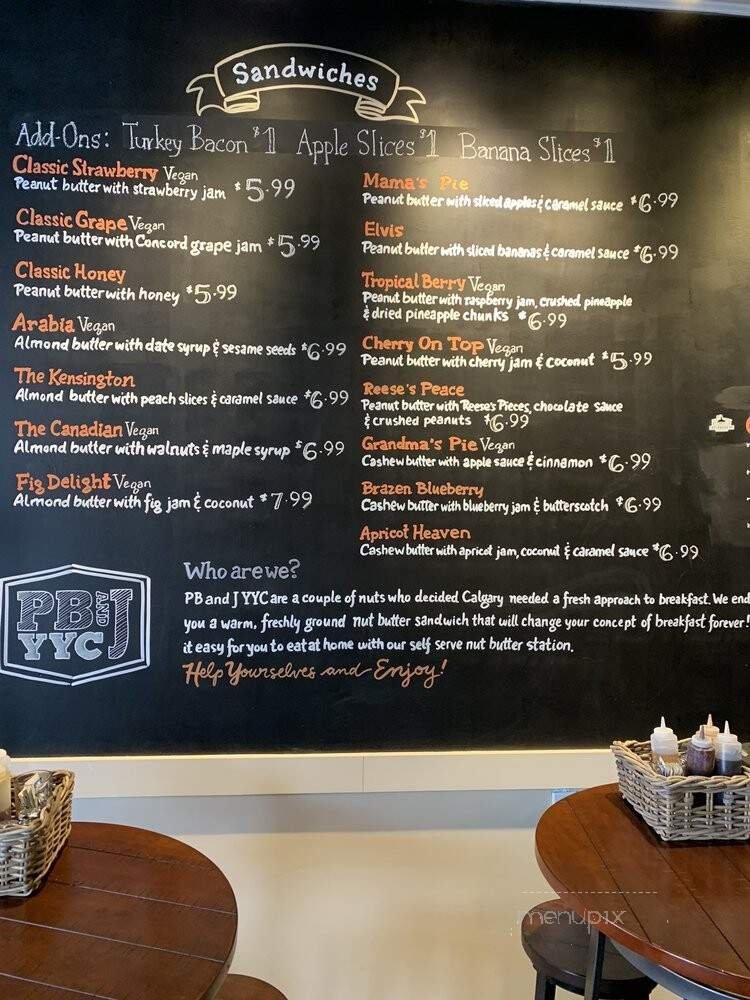 Sandwiches
Add-Ons: Turkey Bacon $1 Apple Slices $1 Banana Slices $1
Classic Strawberry Vegan
Peanut butter with strawberry jam $5.99
Classic Grape Vegan
Peanut butter with Concord grape jam $5.99
Classic Honey
Peanut butter with honey $5.99
Arabia Vegan
Almond butter with date syrup & sesame seeds $6.99
The Kensington
Almond butter with peach slices & caramel sauce $6.99
The Canadian Vegan
Almond butter with walnuts & maple syrup $6.99
Fig Delight Vegan
Almond butter with fig jam & coconut $7.99
Mama's Pie
Peanut butter with sliced apples & caramel sauce $6.99
Elvis
Peanut butter with sliced bananas & caramel sauce $6.99
Tropical Berry Vegan
Peanut butter with raspberry jam, crushed pineapple
& dried pineapple chunks $6.99
Cherry On Top Vegan
Peanut butter with cherry jam & coconut $5.99
Reese's Peace
Peanut butter with Reese's Pieces, chocolate sauce
& crushed peanuts $6.99
Grandma's Pie Vegan
Cashew butter with apple sauce & cinnamon $6.99
Brazen Blueberry
Cashew butter with blueberry jam & butterscotch $6.99
Apricot Heaven
Cashew butter with apricot jam, coconut & caramel sauce $6.99
PB AND J
YYC
Who are we?
PB and J YYC are a couple of nuts who decided Calgary needed a fresh approach to breakfast. We end
you a warm, freshly ground nut butter sandwich that will change your concept of breakfast forever!
it easy for you to eat at home with our self serve nut butter station.
Help Yourselves and Enjoy!
menupix